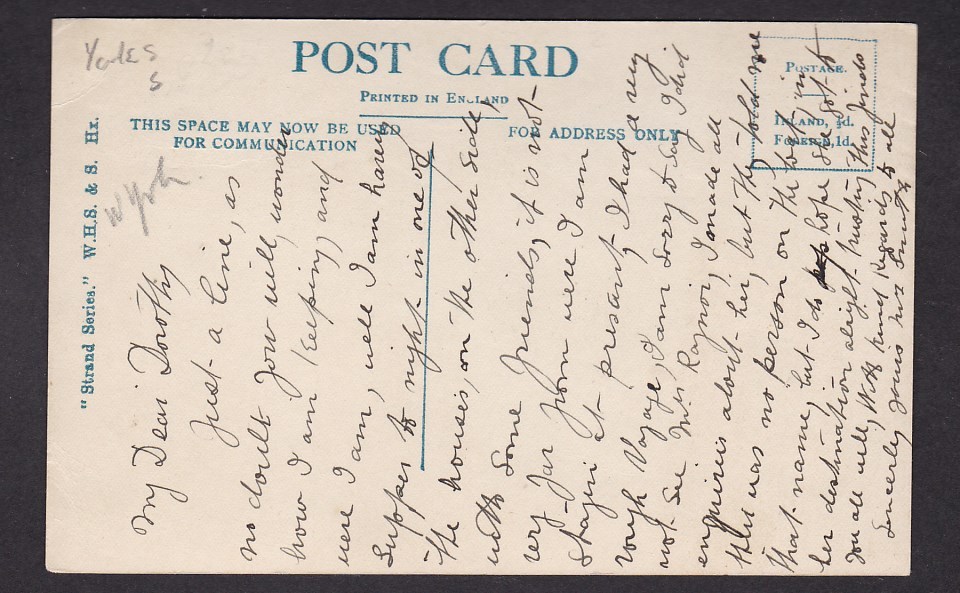 Yorks
S
POST CARD
PRINTED IN ENGLAND
THIS SPACE MAY NOW BE USED
FOR COMMUNICATION
FOR ADDRESS ONLY
POSTAGE.
INLAND, ½d.
FOREIGN, 1d.
"Strand Series." W.H.S. & S. Hx.
My Dear Dorothy
Just a line, as
no doubt you will, wonder
how I am keeping, and
were I am, well I am having
supper to night in one of
the houses, on the other side,
with some friends, it is not
very far from were I am
staying at present, I had a very
rough Voyage, I am sorry to say I did
not see Miss Raynor, I made all
enquireis about her, but they told me
this was no person on the boat in
that name, but I do hope she got to
her destination alright. trusting this finds
you all well, With kind Regards to all
Sincerely yours